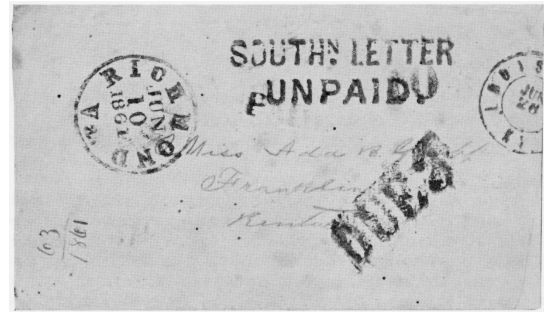 SOUTHN LETTER
UNPAID
RICHMOND VA
JUN
10
1861
LOUIS
KY
JUN
Miss Ada B.
Franklin
DUE 3
63
1861